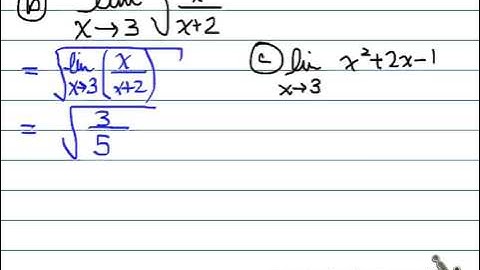 (b) lim x→3 √(x/(x+2))
= √(lim x→3 (x/(x+2)))
= √(3/5)
(c) lim x→3 x²+2x-1